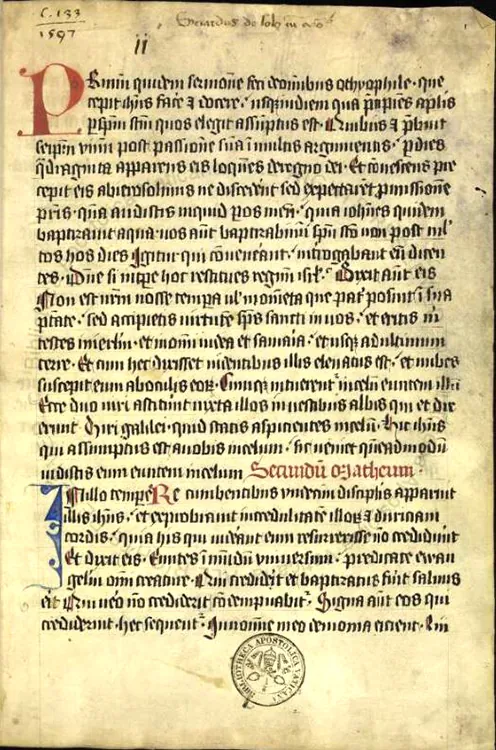 C. 133
1597
ii
PRimum quidem sermonē feci deomnibus othyophile · que
cepit ih̄us facē ⁊ docere · usq̄indiem qua p̄cipiēs ap̄lis
p sp̄m sc̄m quos elegit assūptus est · Quibus ⁊ p̄buit
seip̄m uiuū post passionē suā ī multis argumentis · p dies
q̄draginta apparens eis loquēs deregno dei · Et cōuescens pre
cepit eis abierosolimis ne discedērent sed expectarēt p̄missionē
pr̄is · quā audistis inquid p os meū · quia ioh̄nes quidem
baptizauit aqua · uos aūt baptizabimī sp̄u sc̄o non post ml̄
tos hos dies Igitur qui cōuenerāt · introgabant eū dicen
tes · Dn̄e si ī tp̄re hoc restitues regnū isrl̄ · Dixit aūt eis
Non est ur̄m nosse tempora ul̄ mom̄eta que pat̄ posuit ī sua
p̄tate · sed accipietis uirtutē sp̄s sancti in uos · et eritis m̄
testes inierl̄m · et inomī iudea et samaria · et usq̄ adultimum
terre · Et cum hec dixisset uidentibus illis eleuatus est · et nubes
suscepit eum aboculis eoꝝ · Cumq̄ intuerent̄ incelū euntem illū
Ecce duo uiri astiterūt iuxta illos in uestibus albis qui et dix
erunt · Uiri galilei · quid statis aspicientes incelū · hic ih̄us
qui assumptus est auobis incelum · sic ueniet quēadmodū
uidistis eum euntem incelum Secundū Matheum ·
INillo tempoRe cumbentibus undecim discip̄lis apparuit
illis ih̄us · et exprobrauit incredulitatē illoꝝ ⁊ duriciam
cordis · quia his qui uiderāt eum resurrexisse nō crediderūt
Et dixit eis · Euntes ī mūdū uniuersum · predicate ewan
gelium om̄i creature · Qui crediderit et baptizatus fūit saluus
erit Qui uēo nō crediderit cōdempnabit̄ · Signa aūt eos qui
crediderint · hec sequent̄ · In nomine meo demonia eicient · lin
BIBLIOTHECA APOSTOLICA VATICANA